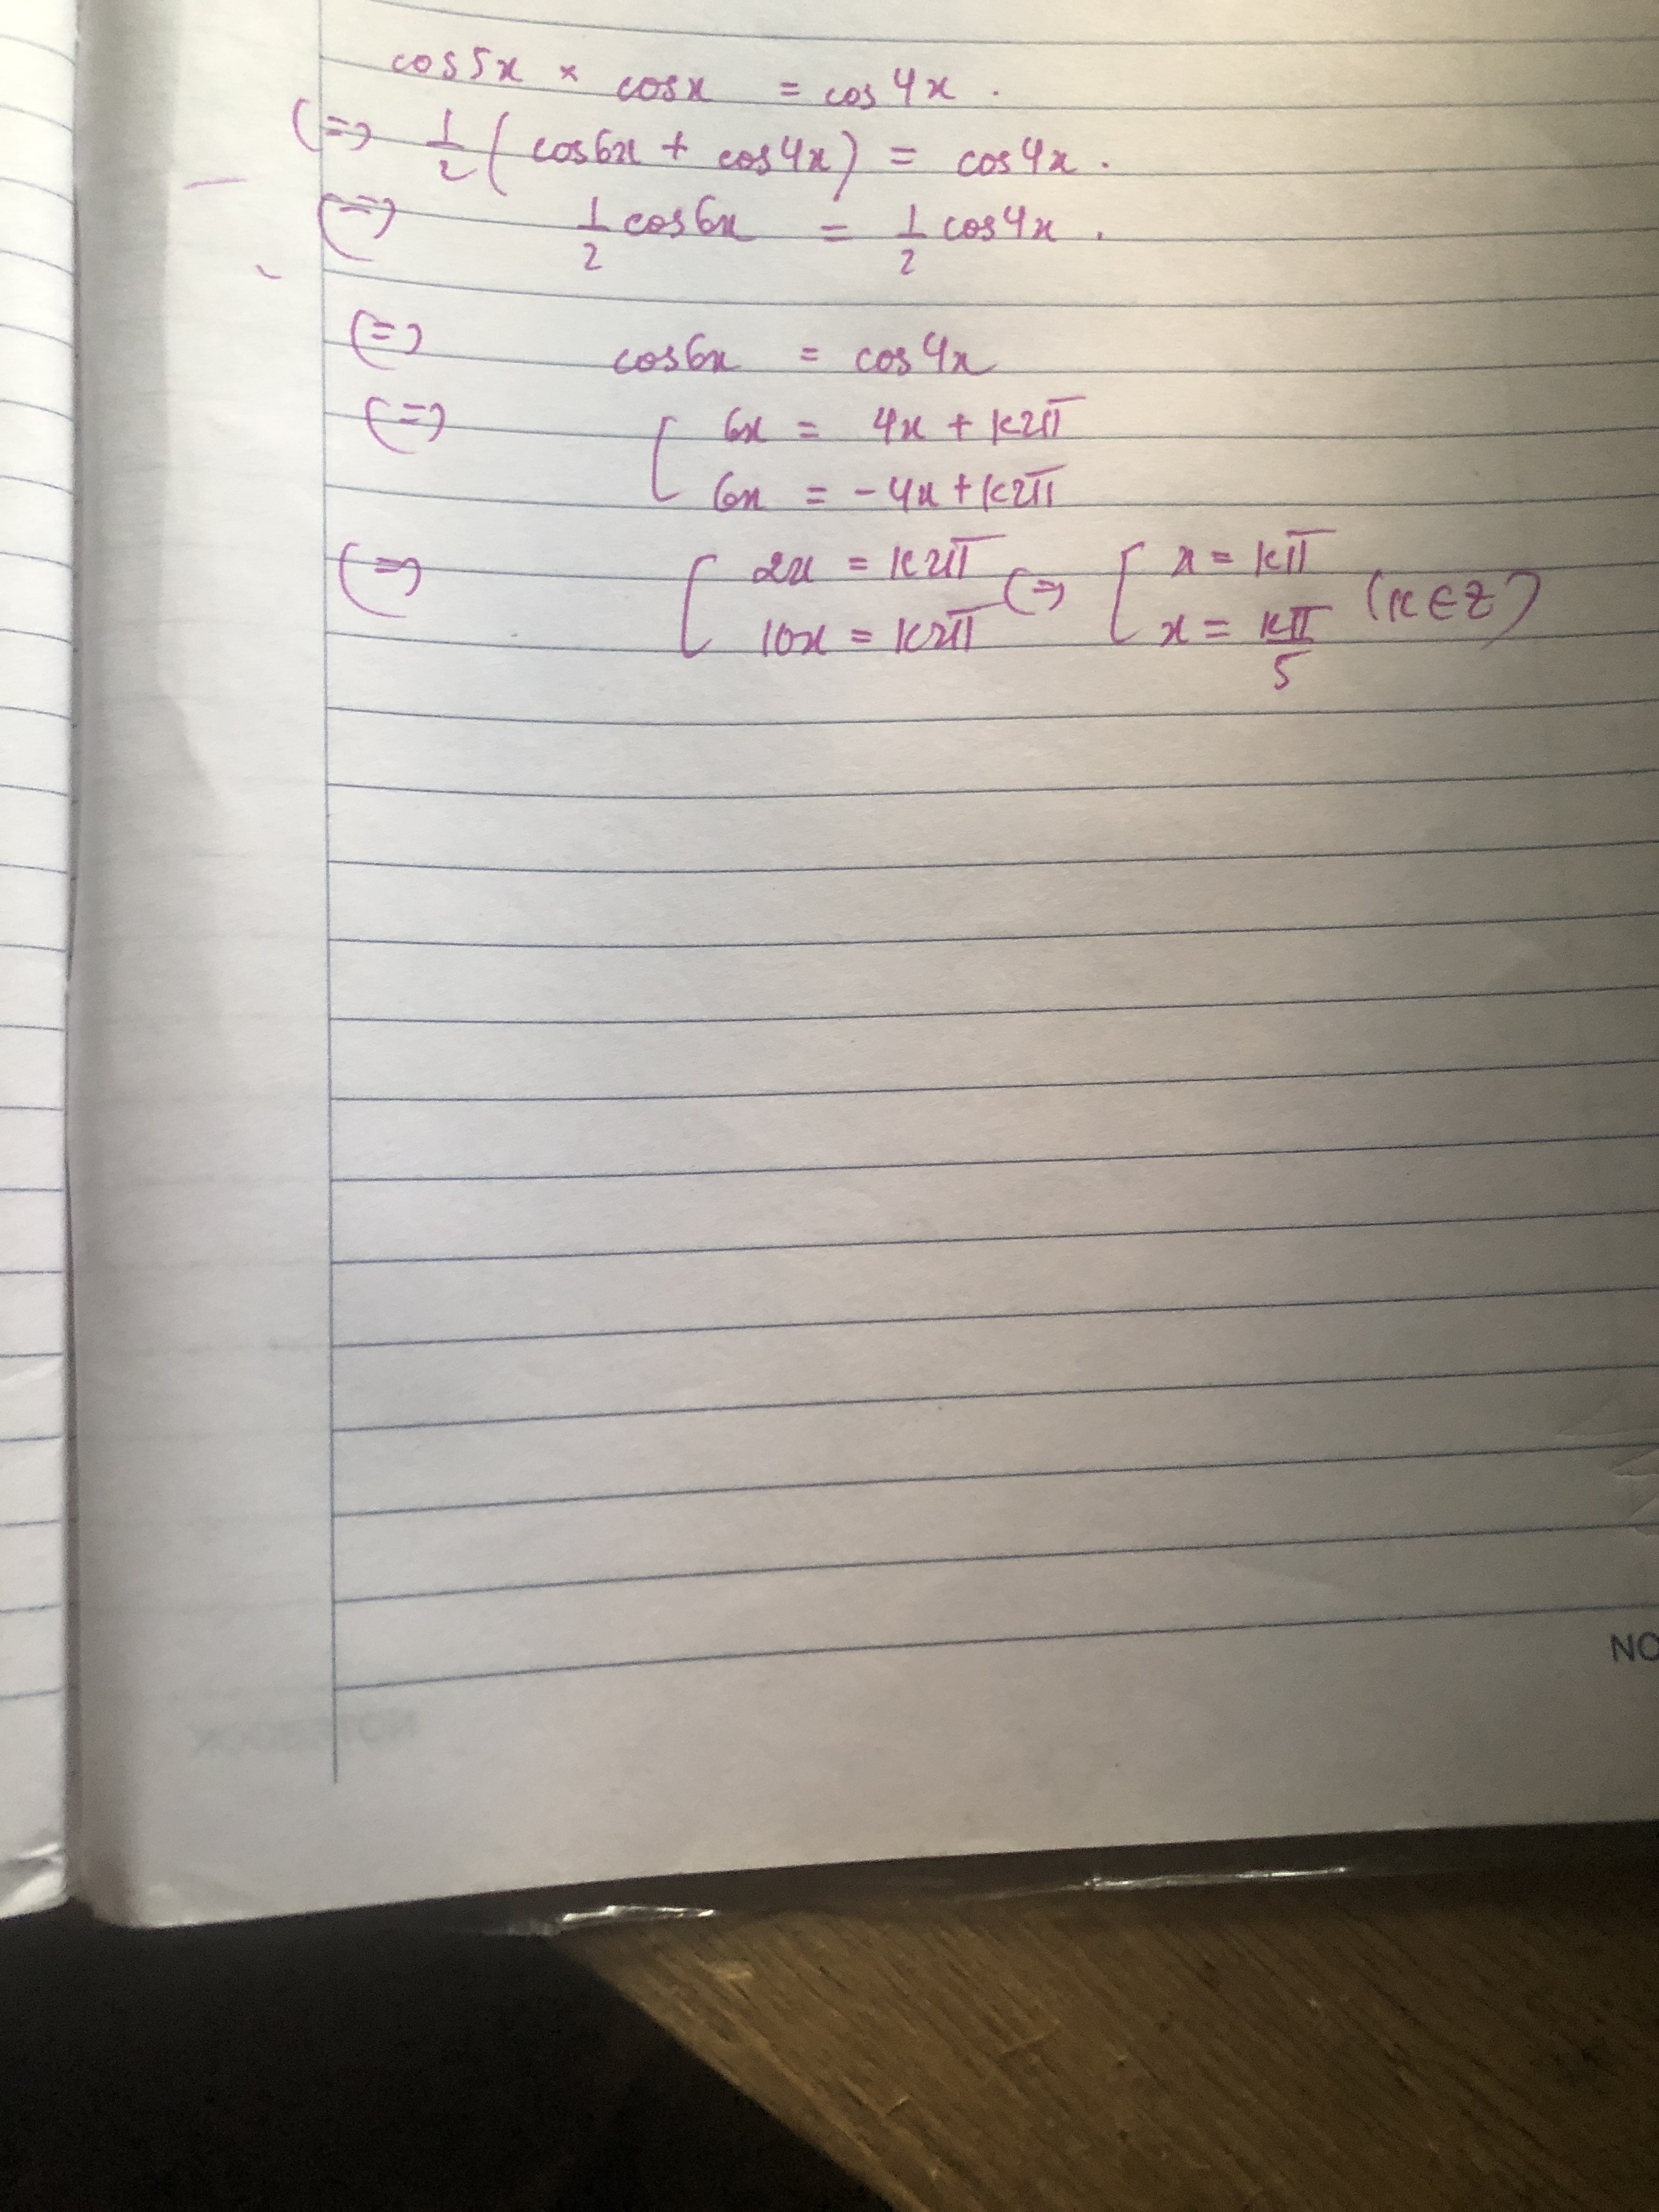 cos5x × cosx = cos4x.
(=) 1/2 (cos6x + cos4x) = cos4x.
(=) 1/2 cos6x = 1/2 cos4x.
(=) cos6x = cos4x
(=) [ 6x = 4x + k2π
6x = -4x + k2π
(=) [ 2x = k2π (=) [ x = kπ
10x = k2π x = kπ/5 (k∈Z)
NO
NOTEBOOK